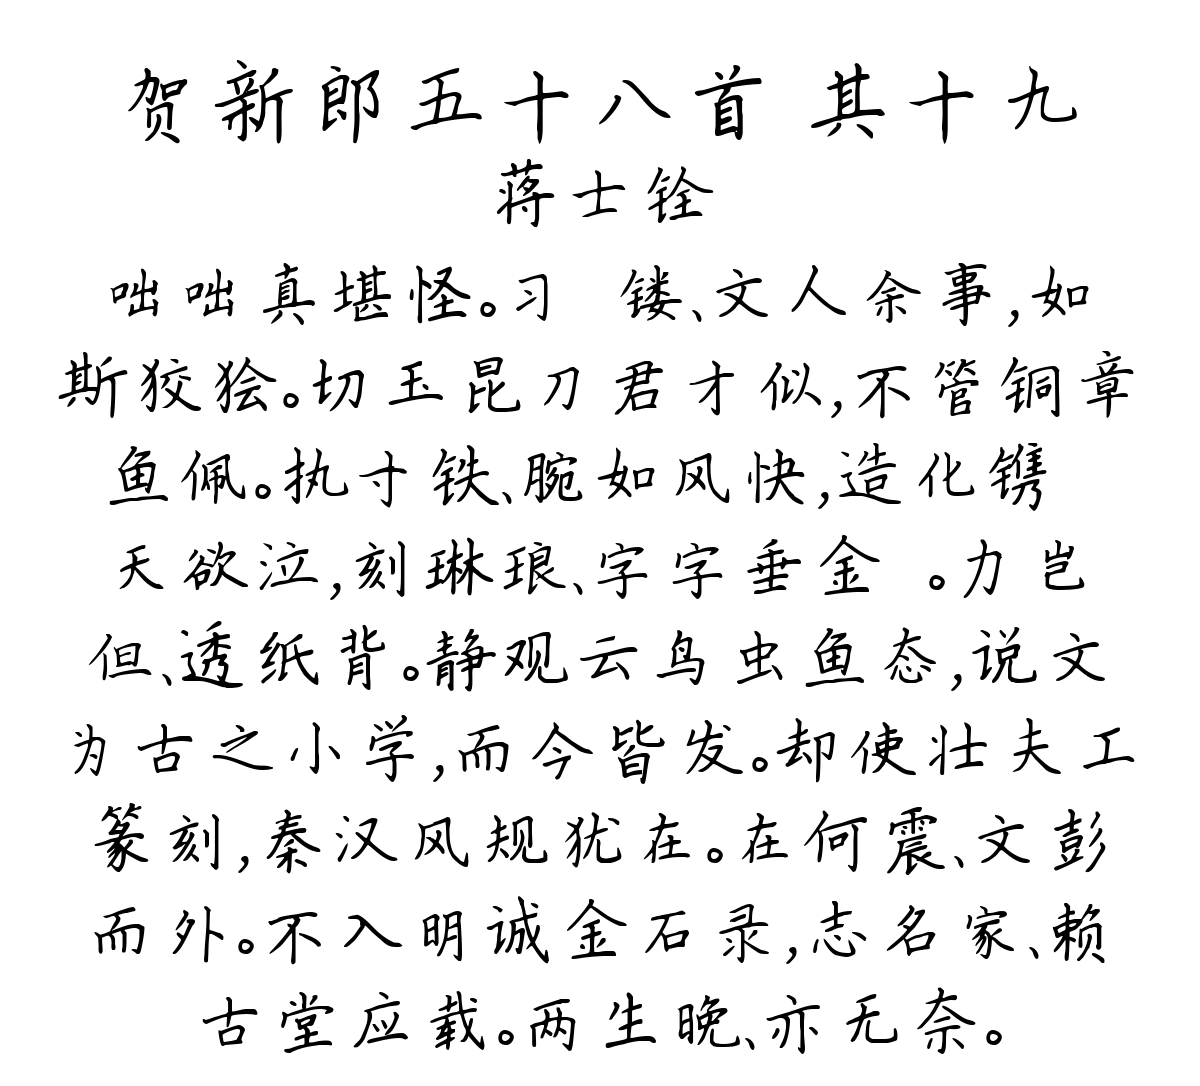 贺新郎五十八首 其十九
蒋士铨
咄咄真堪怪。习 镂、文人余事,如
斯狡狯。切玉昆刀君才似,不管铜章
鱼佩。执寸铁、腕如风快,造化镌
天欲泣,刻琳琅、字字垂金 。力岂
但、透纸背。静观云鸟虫鱼态,说文
为古之小学,而今皆发。却使壮夫工
篆刻,秦汉风规犹在。在何震、文彭
而外。不入明诚金石录,志名家、赖
古堂应载。两生晚、亦无奈。